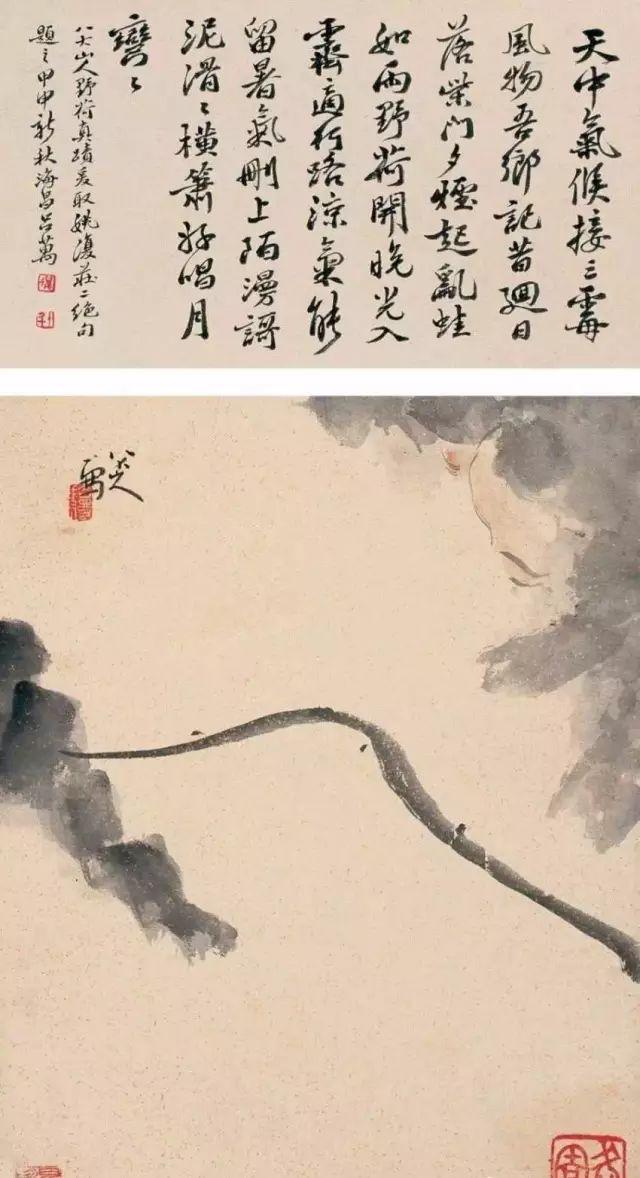 天中氣候接三霉
風物吾鄉記昔迴日
落柴門夕煙起亂蛙
如雨野荷開晚光入
霽適行路涼氣能
留暑氣刪上陌漫謌
泥滑〻橫簫好唱月
彎〻
八大山人野荷真蹟爰取姚復莊二絕句
題之甲申新秋海昌呂萬
八大山人
寫